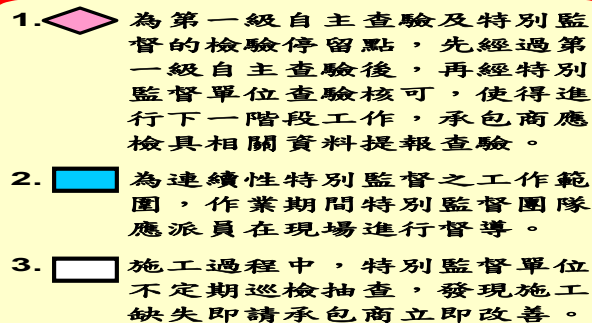 1. 為第一級自主查驗及特別監
督的檢驗停留點，先經過第
一級自主查驗後，再經特別
監督單位查驗核可，使得進
行下一階段工作，承包商應
檢具相關資料提報查驗。
2. 為連續性特別監督之工作範
圍，作業期間特別監督團隊
應派員在現場進行督導。
3. 施工過程中，特別監督單位
不定期巡檢抽查，發現施工
缺失即請承包商立即改善。